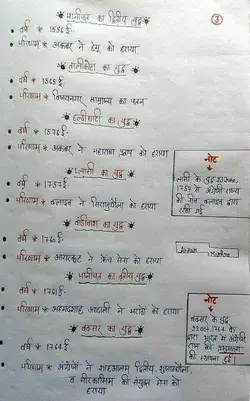 ③
पानीपत का द्वितीय युद्ध
वर्ष * 1556 ई.
परिणाम * अकबर ने हेमू को हराया
तालीकोटा का युद्ध
वर्ष * 1565 ई.
परिणाम * विजयनगर साम्राज्य का पतन
हल्दीघाटी का युद्ध
वर्ष * 1576 ई.
परिणाम * अकबर ने महाराणा प्रताप को हराया
प्लासी का युद्ध
वर्ष * 1757 ई.
परिणाम * क्लाइव ने सिराजुद्दौला को हराया
नोट
प्लासी के युद्ध 23 June,
1757 से अंग्रेजी राज्य
की नींव क्लाइव द्वारा
रखी गई
वांडीवाश का युद्ध
वर्ष * 1760 ई.
परिणाम * आयरकूट ने फ्रेंच सेना को हराया
पानीपत का तृतीय युद्ध
वर्ष * 1761 ई.
परिणाम * अहमदशाह अब्दाली ने मराठों को हराया
बक्सर का युद्ध
वर्ष * 1764 ई.
परिणाम * अंग्रेजों ने शाहआलम द्वितीय, शुजाउद्दौला,
व मीरकासिम की संयुक्त सेना को
हराया
नोट
बक्सर के युद्ध
22 Oct, 1764 के
द्वारा भारत में अंग्रेजी
राज की
स्थापना हुई।